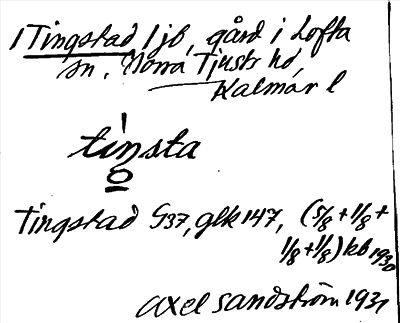 1 Tingstad 1 jb, gård i Lofta
sn, Norra Tjusts hd,
Kalmar l
tiŋsta
Tingstad G37, glk 147, (5/8+1/8+
1/8+1/8) kb 1930
Axel Sandström 1931